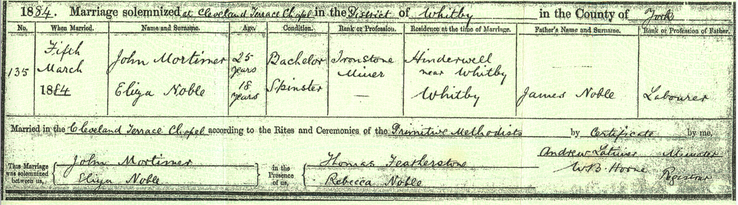 1884. Marriage solemnized at Cleveland Terrace Chapel in the District of Whitby in the County of York
No. When Married. Name and Surname. Age. Condition. Rank or Profession. Residence at the time of Marriage. Father's Name and Surname. Rank or Profession of Father.
135 Fifth March 1884 John Mortimer 25 years Bachelor Ironstone Miner Hinderwell near Whitby
Eliza Noble 18 years Spinster — Whitby James Noble Labourer
Married in the Cleveland Terrace Chapel according to the Rites and Ceremonies of the Primitive Methodists by Certificate by me,
This Marriage was solemnized between us, John Mortimer Eliza Noble in the Presence of us, Thomas Featherstone Rebecca Noble
Andrew Latimer Minister
W.B. Registrar